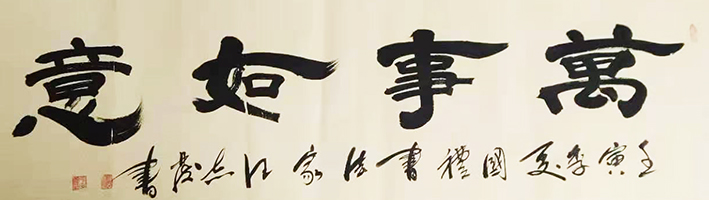 萬事如意
壬寅季夏國禮書法家江志書